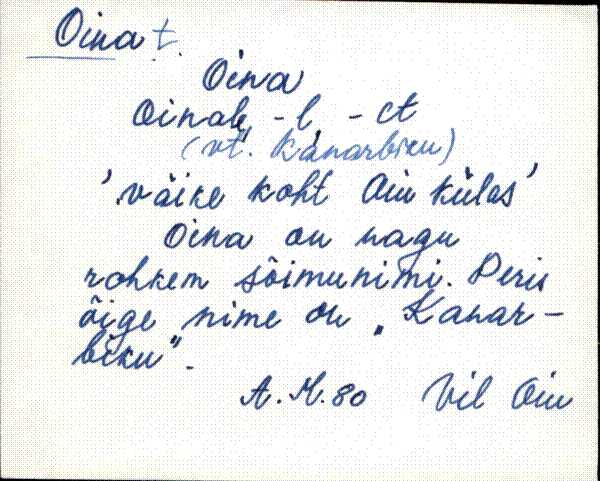 Oina t.
Oina
Oinale -l, -lt
(vt. Kanarbiku)
'väike koht Oiu külas'
Oina on nagu
rohkem sõimunimi. Peris
õige nime on „Kanar-
biku".
A.M.80 Vil Oiu